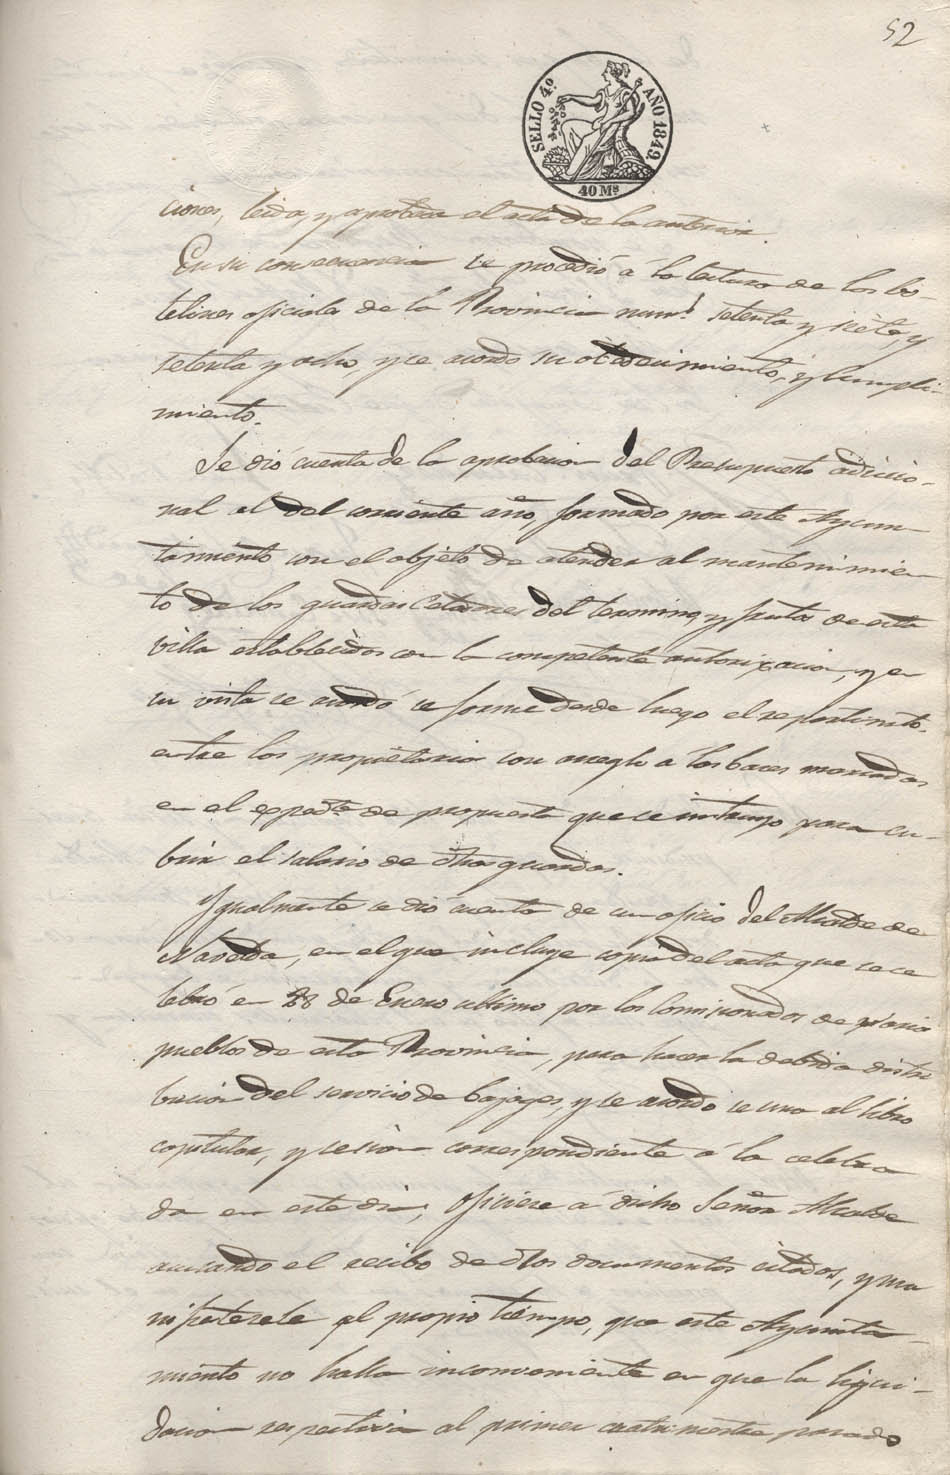 52
SELLO 4.º AÑO 1849.
40 Ms
ciones, leida, y aprobada el acta de la anterior.
En su consecuencia se procedió á la lectura de los bo-
letines oficiales de la Provincia num.s setenta y siete, y
setenta y ocho, y se acordó su obedecimiento, y cumpli-
miento.
Se dió cuenta de la aprobacion del Presupuesto adicio-
nal al del corriente año, formado por este Ayun-
tamiento con el objeto de atender al mantenimien-
to de los guardas celadores del termino y frutos de esta
villa establecidos con la competente autorizacion, y en
su vista se acordó se forme desde luego el repartimto.
entre los propietarios con arreglo á las bases marcadas
en el espedte. de propuesta que se instruyo para cu-
brir el salario de dhos guardas.
Ygualmente se dió cuenta de un oficio del Alcalde de
Navelda, en el que incluye copia del acta que se ce
lebró en 28 de Enero ultimo por los Comisionados de varios
pueblos de esta Provincia, para hacer la debida distri
bucion del servicio de bajages, y se acordó se una al libro
capitular, y sesion correspondiente á la celebra
da en este dia; oficiese á dicho Señor Alcalde
acusando el recibo de dhos documentos citados, y ma
nifestesele al propio tiempo, que este Ayunta-
miento no halla inconveniente en que la liqui-
dacion respectiva al primer cuatrimestre pasado